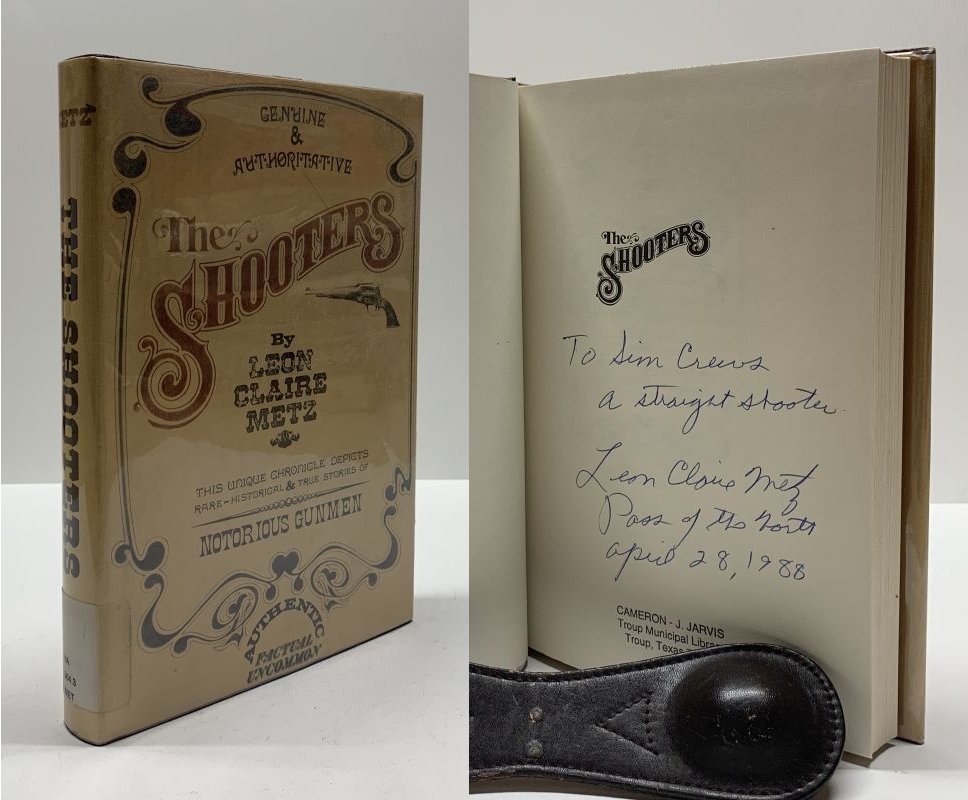 GENUINE
&
AUTHORITATIVE
The
SHOOTERS
By
LEON
CLAIRE
METZ
THIS UNIQUE CHRONICLE DEPICTS
RARE-HISTORICAL & TRUE STORIES OF
NOTORIOUS GUNMEN
AUTHENTIC
FACTUAL
UNCOMMON
METZ
THE SHOOTERS
The
SHOOTERS
To Sim Crews
a straight shooter
Leon Claire Metz
Pass of the North
April 28, 1988
CAMERON - J. JARVIS
Troup Municipal
Troup, Texas